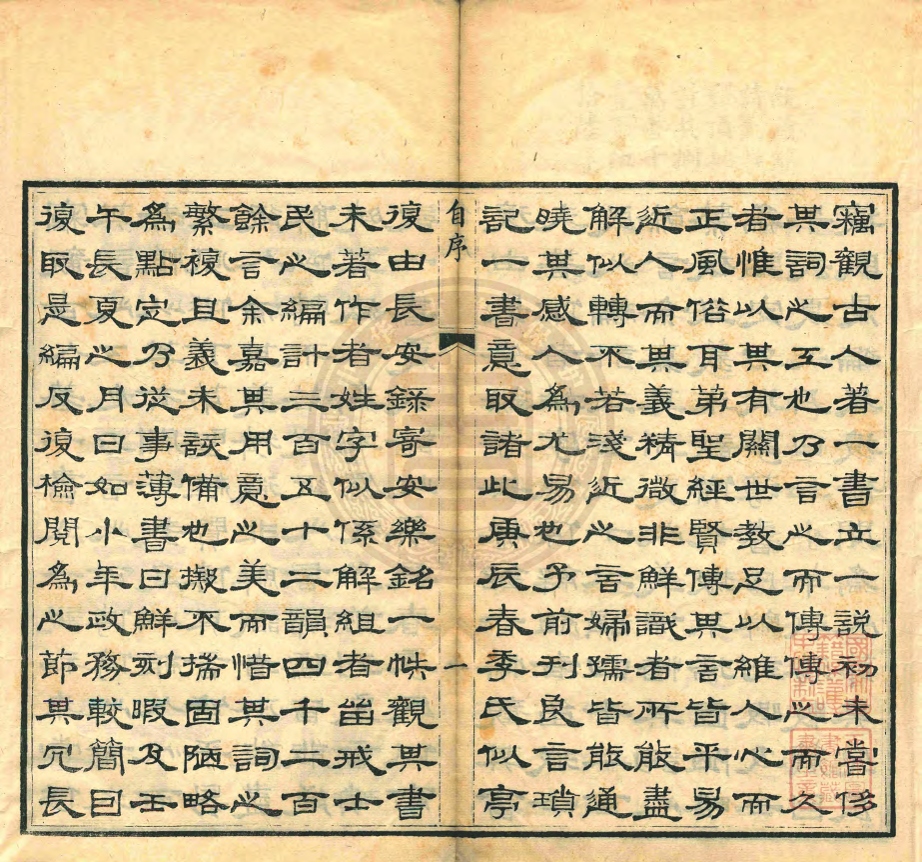 竊觀古人著一書立一說初未嘗侈
其詞之工也乃言之而傳傳之而久
者惟以其有關世教足以維人心而
正風俗耳第聖經賢傳其言皆平易
近人而其義精微非鮮識者所能盡
解似轉不若淺近之言婦孺皆能通
曉其感人為尤易也予前刊良言瑣
記一書意取諸此庚辰春季氏似亭
自序
一
復由長安錄寄安樂銘一帙觀其書
未著作者姓字似係解組者留戒士
民之編計三百五十二韻四千二百
餘言余嘉其用意之美而惜其詞之
繁複且義未該備也擬不揣固陋略
為點定乃從事薄書日鮮刻暇及壬
午長夏之月日如小年政務較簡曰
復取是編反復檢閱為之節其冗長